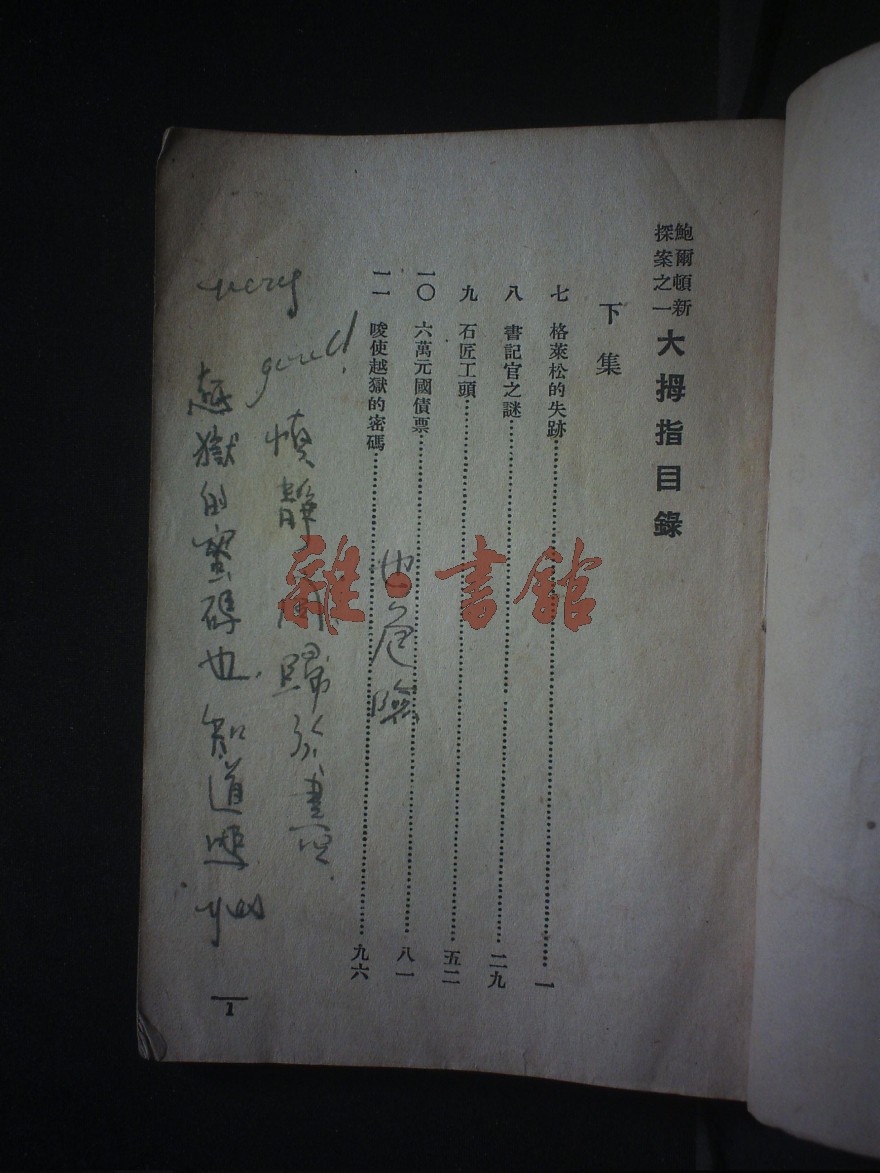 鮑爾頓新
探案之一
大拇指目錄
下集
七 格萊松的失跡 一
八 書記官之謎 二九
九 石匠工頭 五二
一〇 六萬元國債票 八一
一一 唆使越獄的密碼 九六
也危險
very
good!
歸於
越獄的蜜碼也知道
yes
1
雜·書館